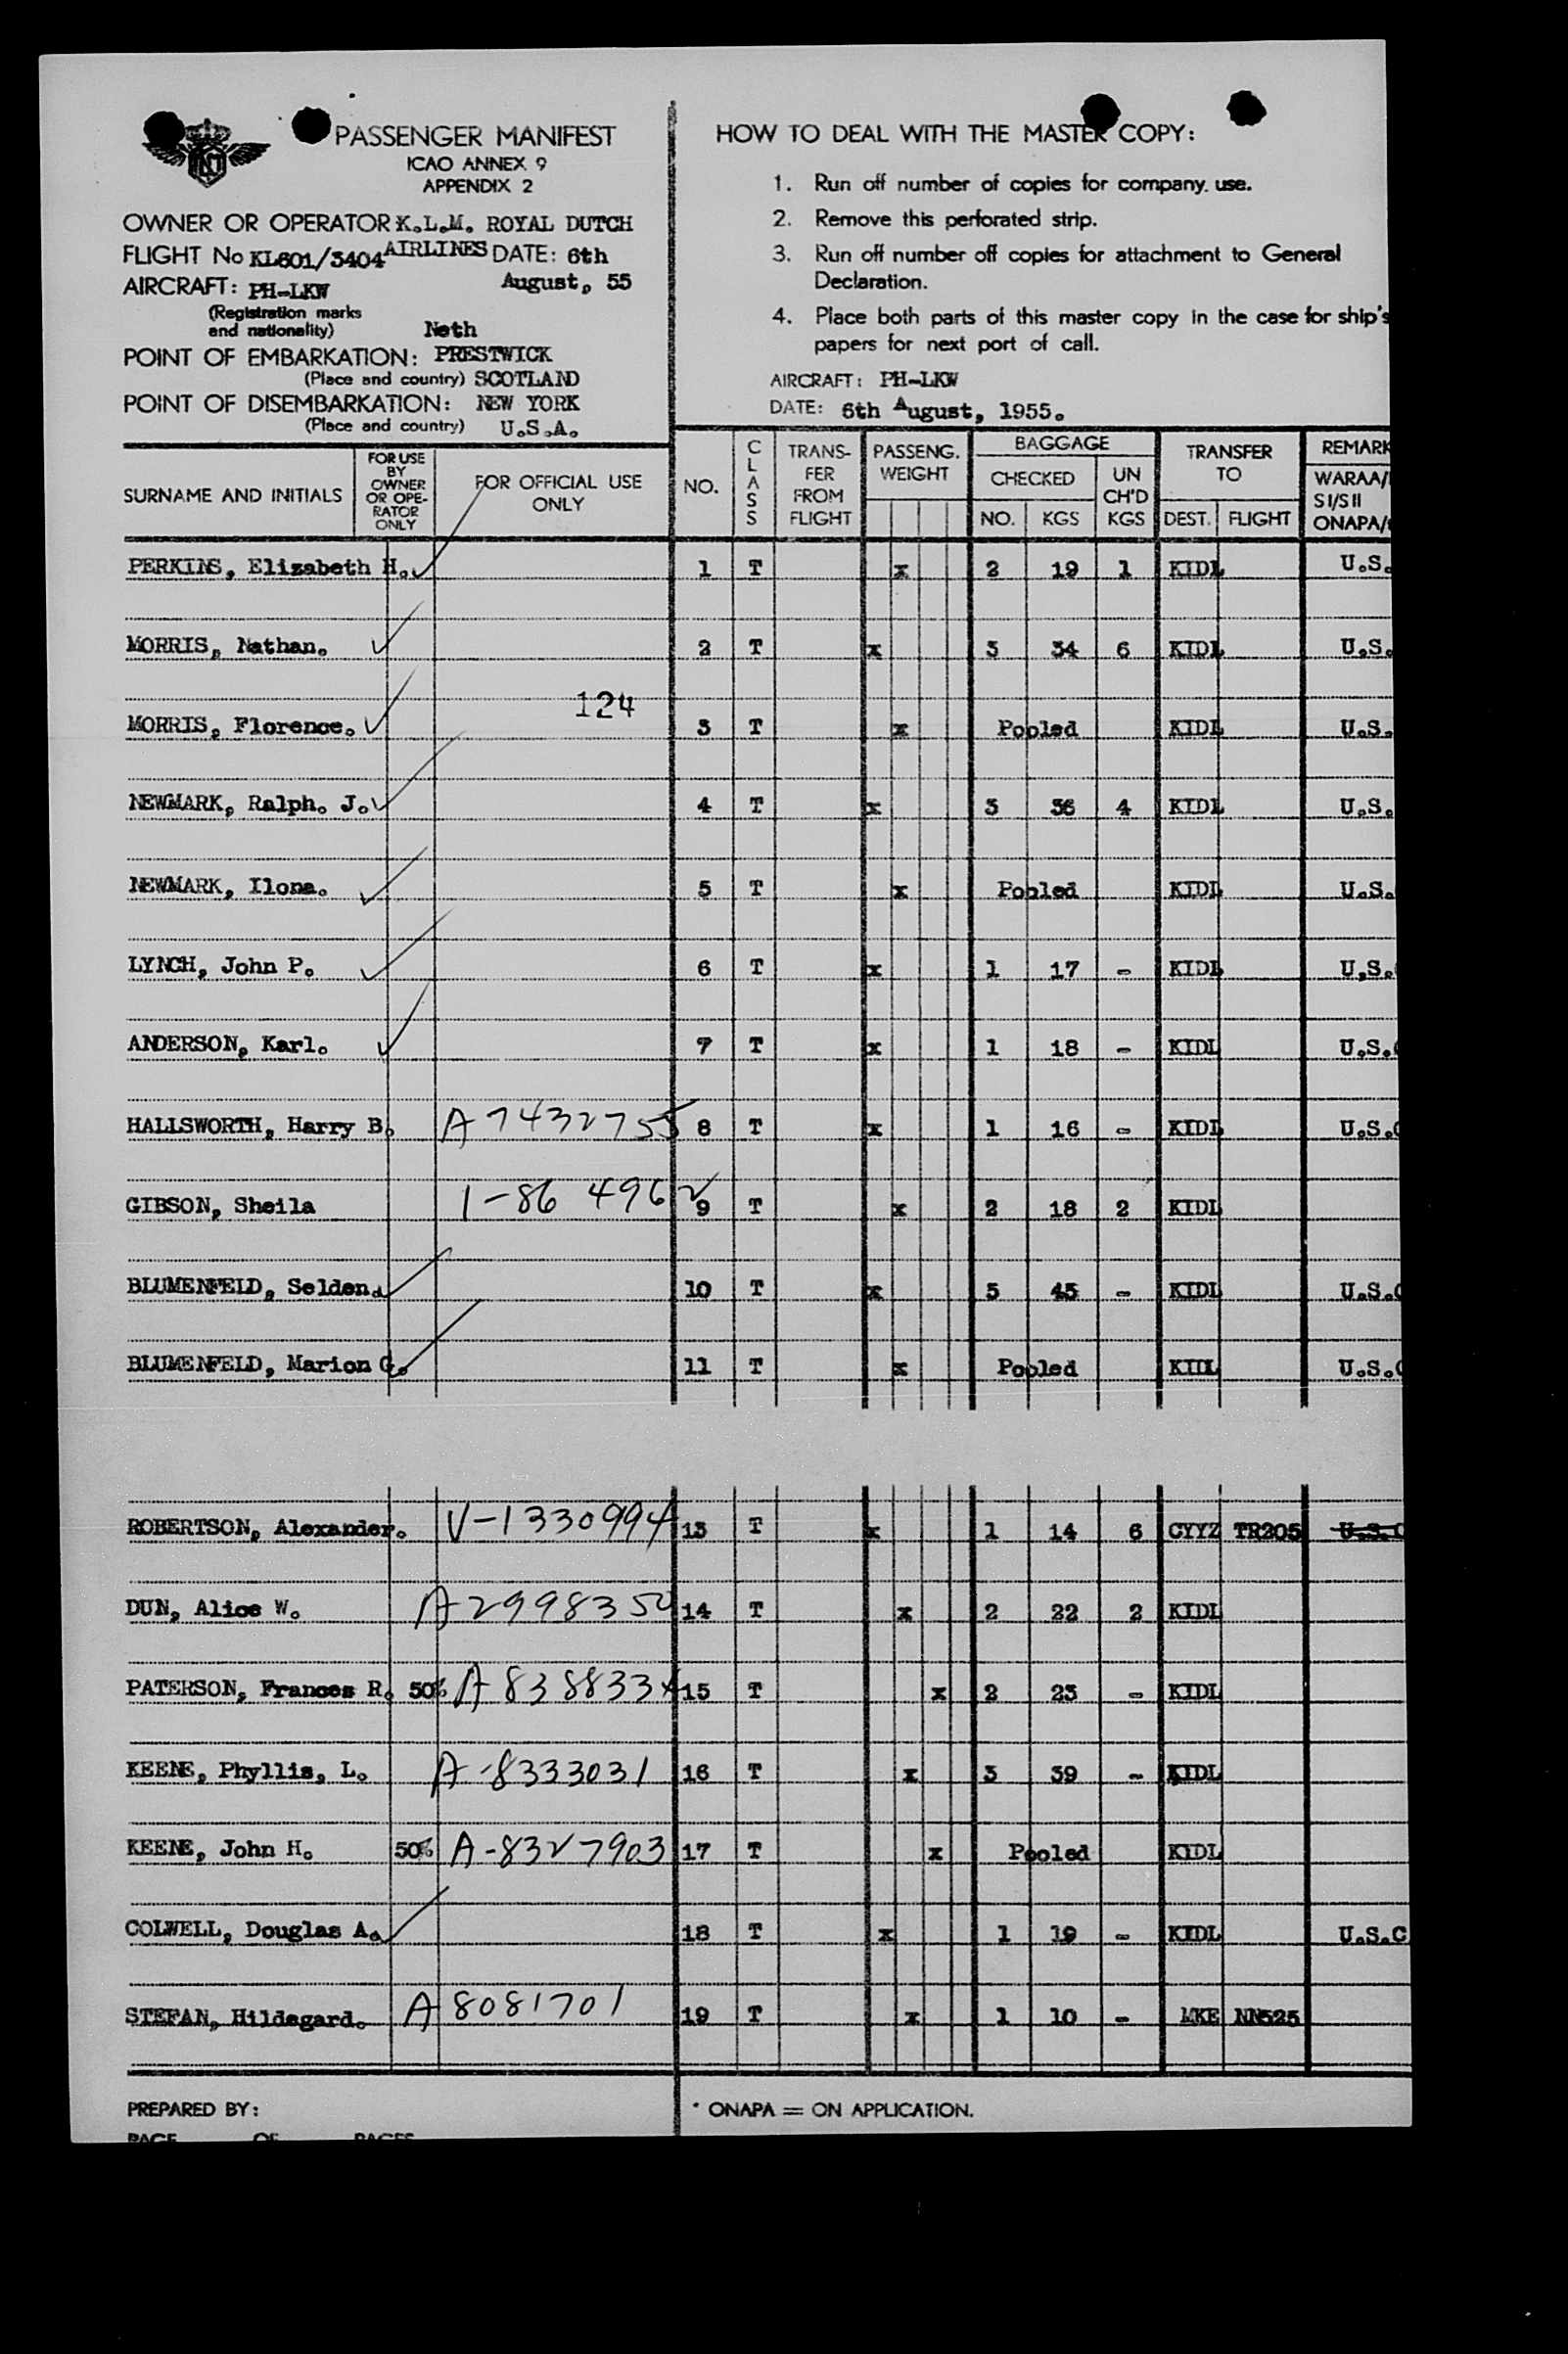 PASSENGER MANIFEST
ICAO ANNEX 9
APPENDIX 2
OWNER OR OPERATOR K.L.M. ROYAL DUTCH
AIRLINES
FLIGHT No KL601/3404 DATE: 6th
August, 55
AIRCRAFT: PH-LKW
(Registration marks
and nationality) Neth
POINT OF EMBARKATION: PRESTWICK
(Place and country) SCOTLAND
POINT OF DISEMBARKATION: NEW YORK
(Place and country) U.S.A.
HOW TO DEAL WITH THE MASTER COPY:
1. Run off number of copies for company use.
2. Remove this perforated strip.
3. Run off number off copies for attachment to General
Declaration.
4. Place both parts of this master copy in the case for ship's
papers for next port of call.
AIRCRAFT: PH-LKW
DATE: 6th August, 1955.
SURNAME AND INITIALS
FOR USE
BY
OWNER
OR OPE-
RATOR
ONLY
FOR OFFICIAL USE
ONLY
NO.
CLASS
TRANS-
FER
FROM
FLIGHT
PASSENG.
WEIGHT
BAGGAGE
CHECKED
NO. KGS
UN
CH'D
KGS
TRANSFER
TO
DEST. FLIGHT
REMARK
WARAA/
SI/SII
ONAPA/
PERKINS, Elizabeth H. 1 T x 2 19 1 KIDL U.S.
MORRIS, Nathan. 2 T x 3 34 6 KIDL U.S.
124
MORRIS, Florence. 3 T x Pooled KIDL U.S.
NEWMARK, Ralph. J. 4 T x 3 36 4 KIDL U.S.
NEWMARK, Ilona. 5 T x Pooled KIDL U.S.
LYNCH, John P. 6 T x 1 17 - KIDL U.S.
ANDERSON, Karl. 7 T x 1 18 - KIDL U.S.C
HALLSWORTH, Harry B. A7432755 8 T x 1 16 - KIDL U.S.C
GIBSON, Sheila 1-86 4962 9 T x 2 18 2 KIDL
BLUMENFELD, Selden. 10 T x 5 45 - KIDL U.S.C
BLUMENFELD, Marion G. 11 T x Pooled KIDL U.S.C
ROBERTSON, Alexander. V-1330994 13 T x 1 14 6 CYYZ TR205 U.S.C
DUN, Alice W. A2998350 14 T x 2 22 2 KIDL
PATERSON, Frances R. 50% A-8388334 15 T x 2 23 - KIDL
KEENE, Phyllis, L. A-8333031 16 T x 3 39 - KIDL
KEENE, John H. 50% A-8327903 17 T x Pooled KIDL
COLWELL, Douglas A. 18 T x 1 19 - KIDL U.S.C
STEFAN, Hildegard. A8081701 19 T x 1 10 - MKE NN525
PREPARED BY:
* ONAPA = ON APPLICATION.
PAGE OF PAGES